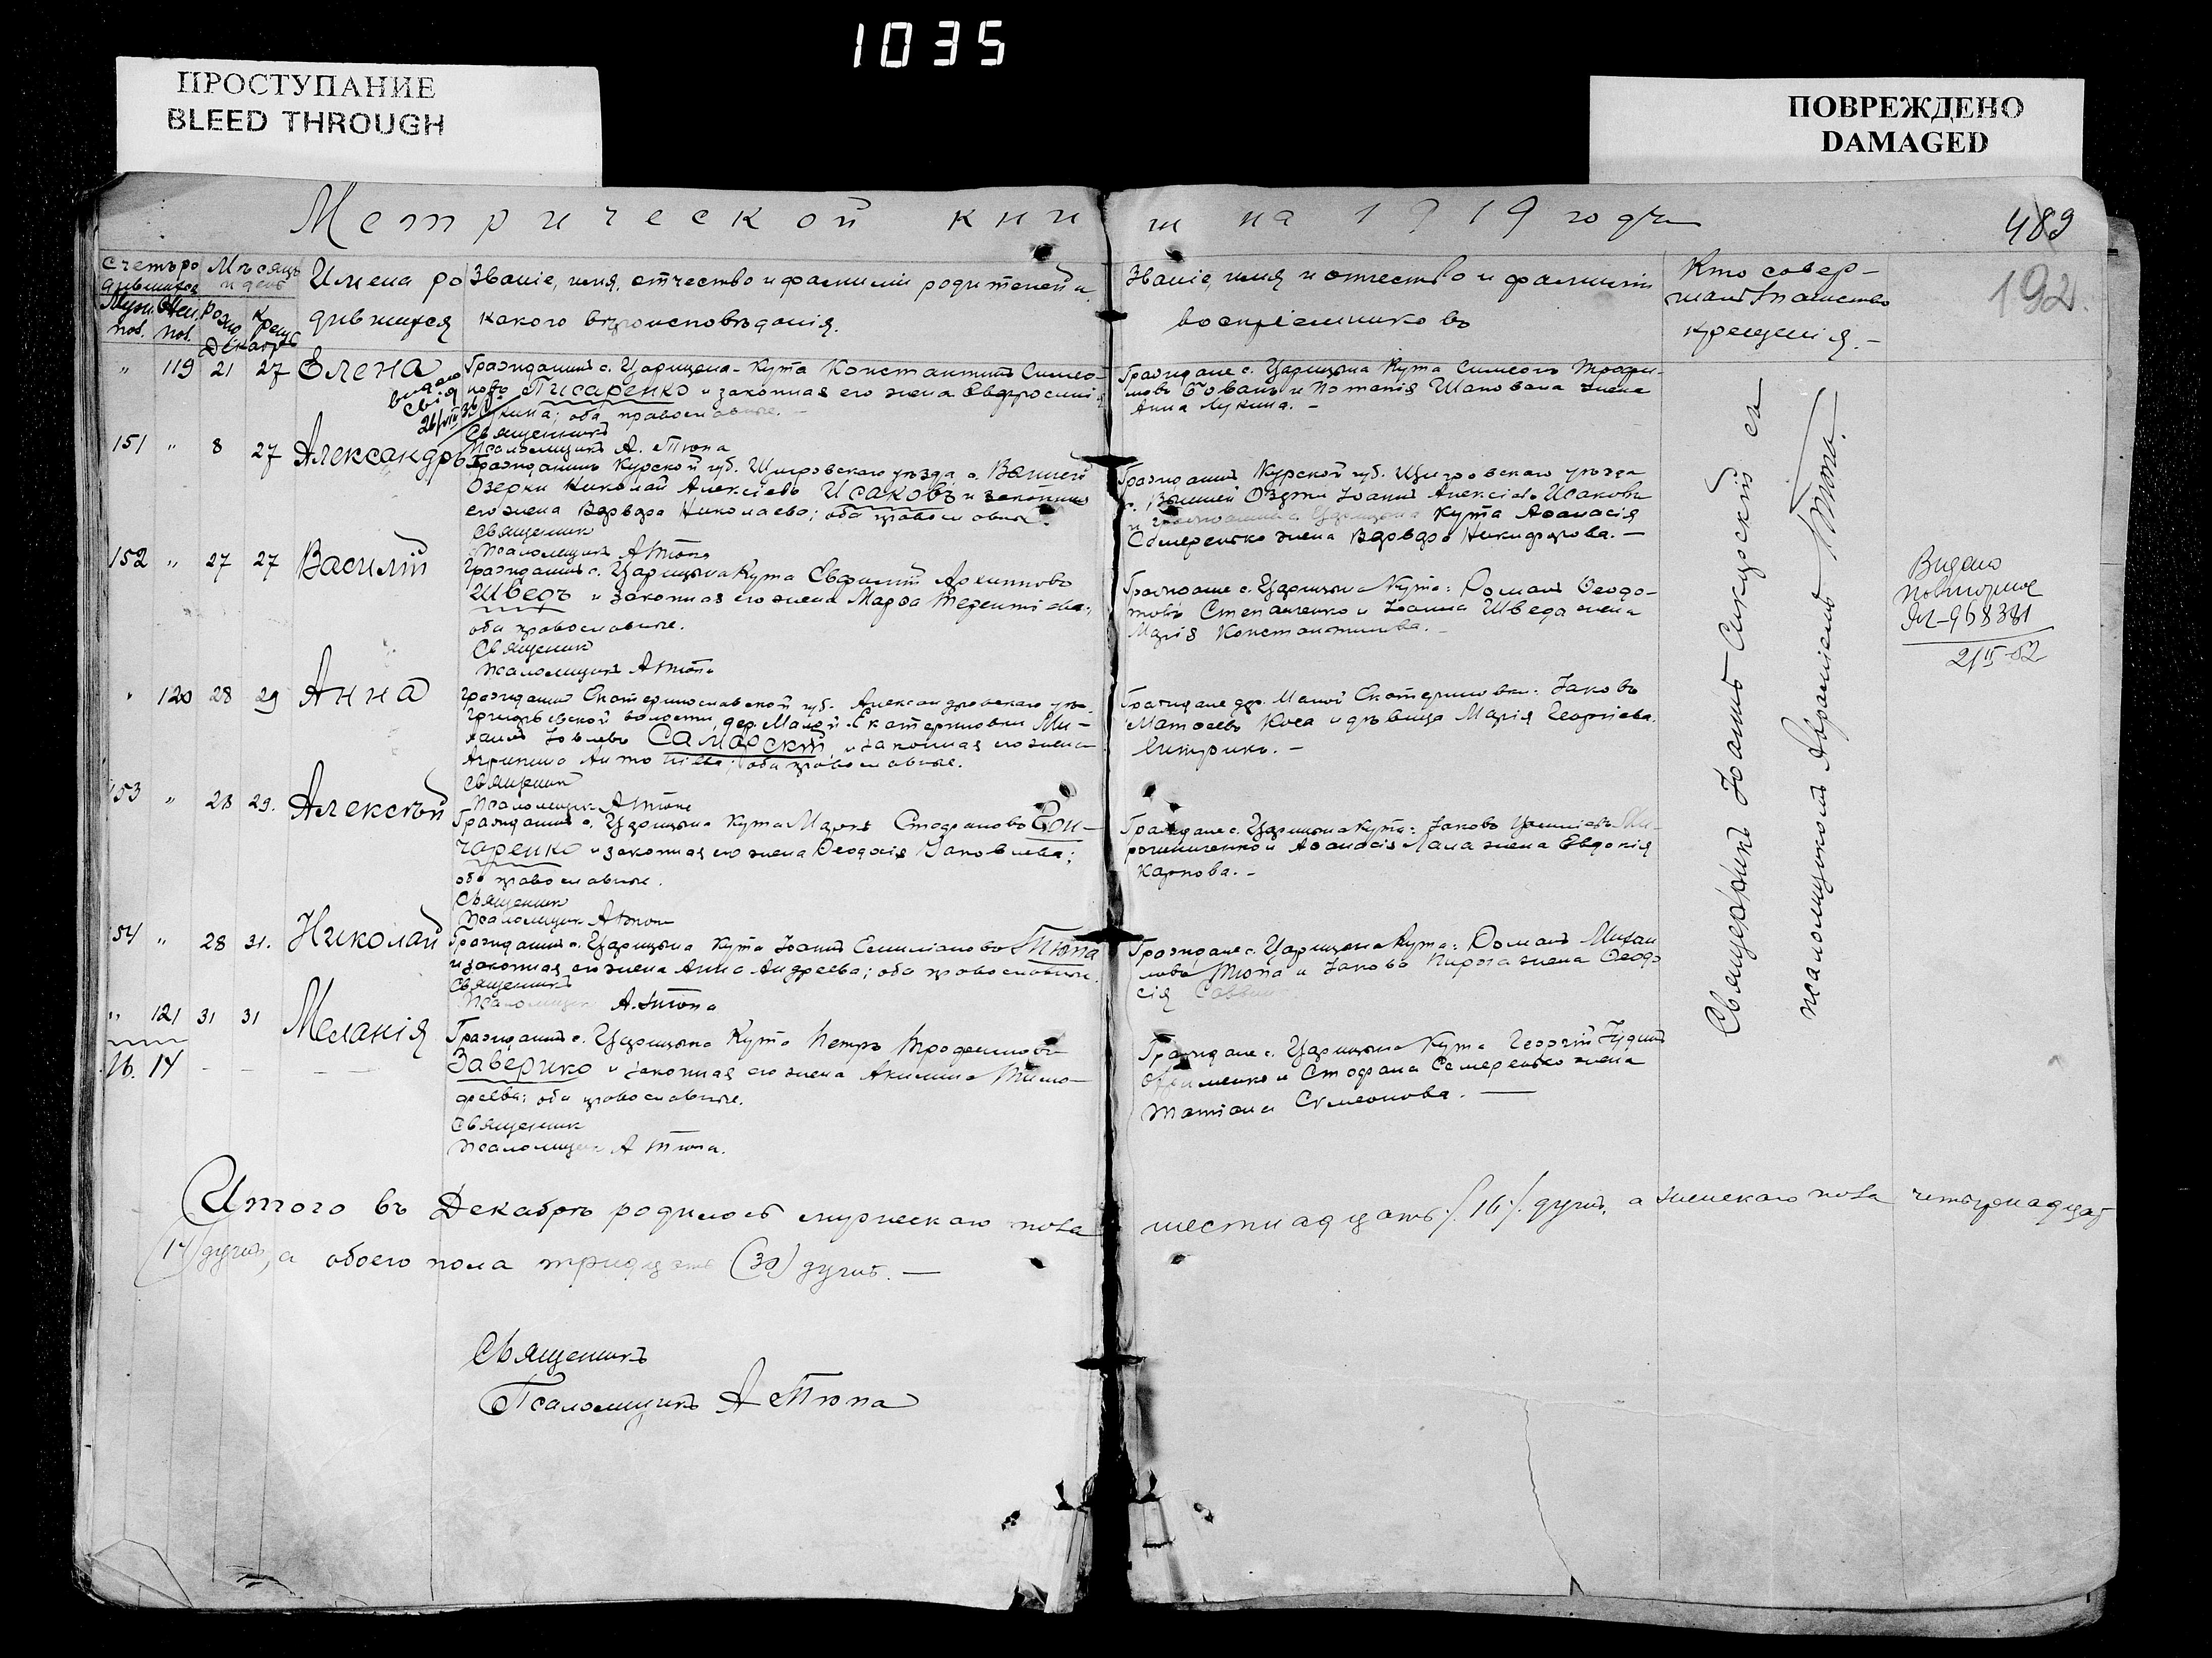 1035
ПРОСТУПАНИЕ
BLEED THROUGH
ПОВРЕЖДЕНО
DAMAGED
Метрической книги на 1919 годъ
489
192.
Счетъ ро
дившихся
Мѣсяцъ
и день
Муж. Жен.
пол. пол.
Рожд. Крещ.
Декабрь
Имена ро
дившихся
Званіе, имя, отчество и фамиліи родителей и
какого вѣроисповѣданія.
Званіе, имя и отчество и фамиліи
воспріемниковъ
Кто совер-
шалъ таинство
крещенія.-
" 119 21 27 Елена
Гражданинъ с. Царицына-Кута Константинъ Симео-
новъ Писаренко и законная его жена Евфросинія
оба православные. -
Граждане с. Царицына Кута Симеонъ Трофи-
мовъ Бованъ и Потапія Шаповала жена
Анна Лукина. -
Священникъ
Псаломщикъ А. Тюпа
151 " 8 27 Александръ
Гражданинъ Курской губ. Щигровскаго уѣзда, с.
Озерки Николай Алексіевъ Исаковъ и законная
его жена Варвара Николаева; оба православные.
Гражданинъ Курской губ. Щигровскаго уѣзда
Іоаннъ Алексіевъ Исаковъ
и гражданина с. Царицына Кута Аѳанасія
Семеренко жена Варвара Никифорова. -
Священникъ
Псаломщикъ А Тюпа
152 " 27 27 Василій
Гражданинъ с. Царицына Кута Евфимій Архиповъ
Шведъ и законная его жена Марѳа Терентіева;
оба православные.
Граждане с. Царицына Кута: Романъ Ѳеодо-
товъ Степаненко и Іоанна Шведа жена
Марія Константинова. -
Священникъ
Псаломщикъ А Тюпа
Видано
повторное
968381
2/II-52
" 120 28 29 Анна
Гражданинъ Екатеринославской губ. Александровскаго уѣз.
волости, дер. Малой-Екатериновки Ми-
хаилъ Іовлевъ Самарскій и законная его жена
оба православные.
Граждане дер. Малой Екатериновки: Іаковъ
Матѳеевъ Коса и дѣвица Марія Георгіева
Священникъ
Псаломщикъ А Тюпа
153 " 28 29. Алексѣй
Гражданинъ с. Царицына Кута Маркъ Стефановъ Гон-
чаренко и законная его жена Ѳеодосія Іаковлева;
оба православные.
Граждане с. Царицына Кута: Іаковъ
Аѳанасія Лала жена Евдокія
Карпова. -
Священникъ
Псаломщикъ А Тюпа
154 " 28 31. Николай
Гражданинъ с. Царицына Кута Іоаннъ Емиліановъ Тюпа
и законная его жена Анна Андреева; оба православные.
Граждане с. Царицына Кута: Романъ Михаи
ловъ Тюпа и Іакова Пирога жена Ѳеодо
сія
Священникъ
Псаломщикъ А. Тюпа
" 121 31 31 Меланія
Гражданинъ с. Царицына Кута Петръ Трофимовъ
Заверико и законная его жена Акилина Тимо-
феева; оба православные.
Граждане с. Царицына Кута Георгій
и Стефана Семеренко жена
Татіана Симеонова. -
16. 14
Священникъ
Псаломщикъ А Тюпа.
Священникъ Іоаннъ Сикорскій съ
псаломщикомъ Авраміемъ Тюпа.
Итого въ Декабрѣ родилось мужескаго пола шестнадцать /16/ душъ, а женскаго пола четырнадцать
(14) душъ, а обоего пола тридцать (30) душъ. -
Священникъ
Псаломщикъ А Тюпа